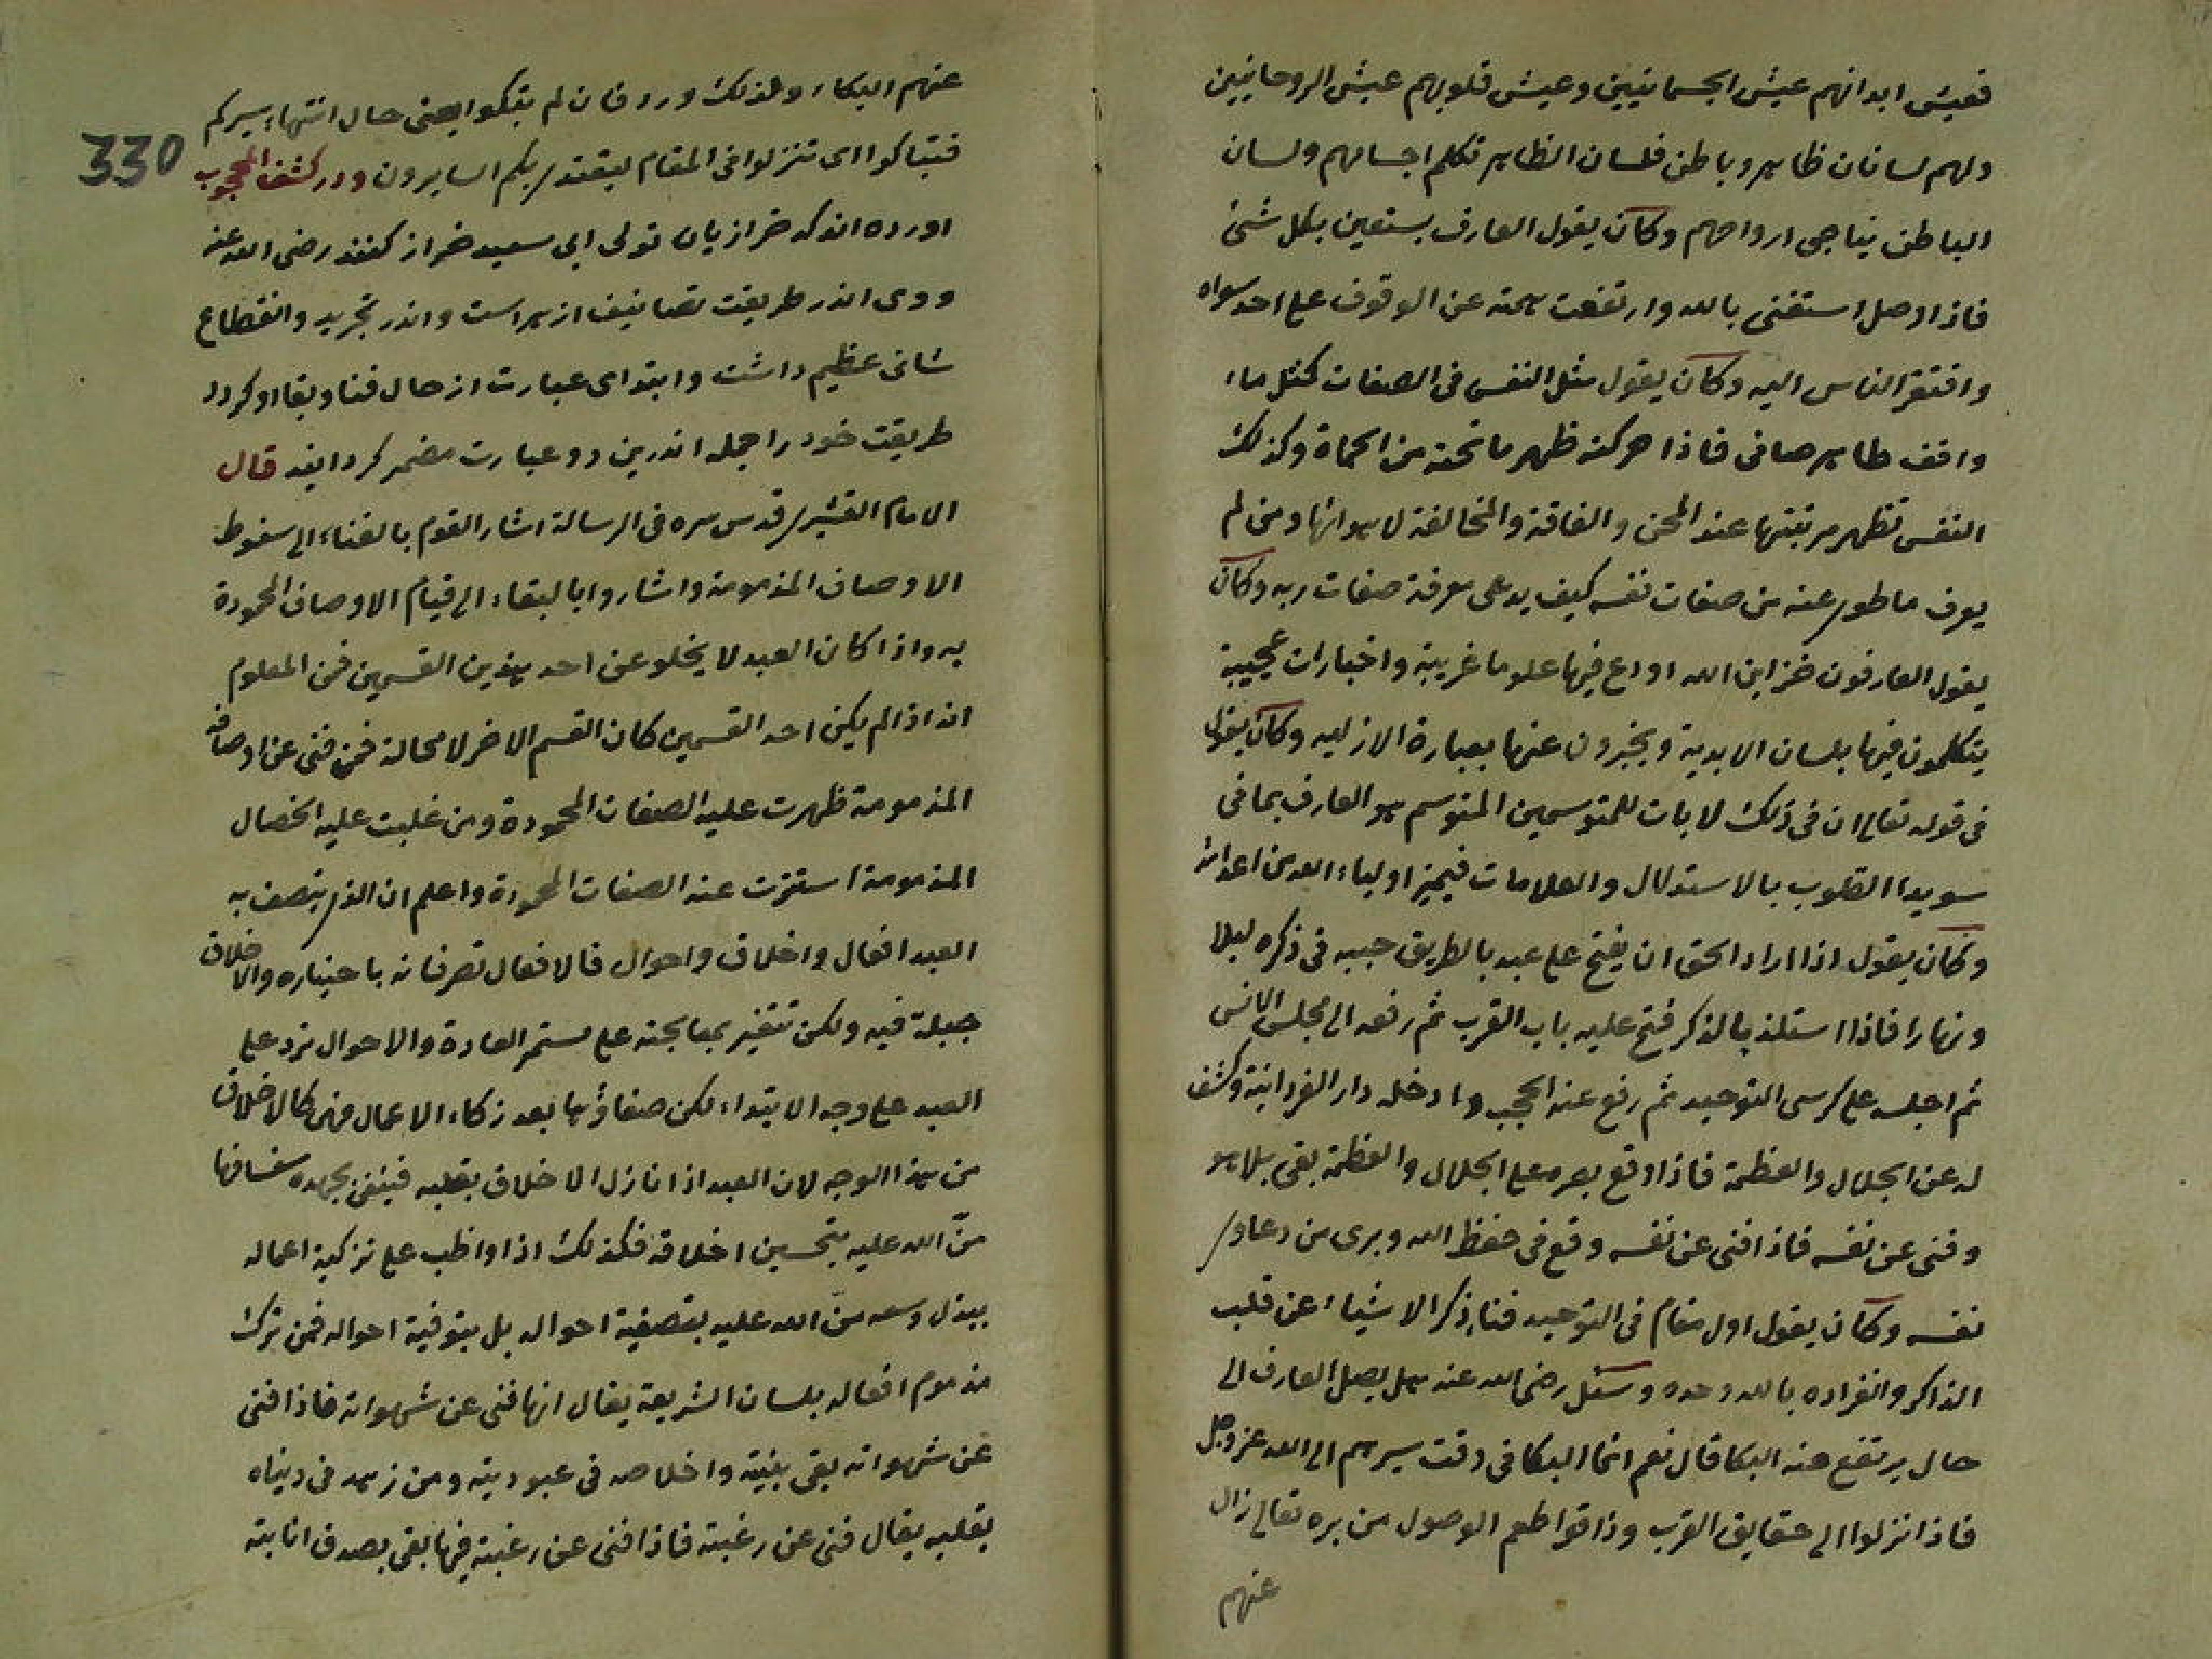 فعيش ابدانهم عيش الجسمانيين وعيش قلوبهم عيش الروحانيين
ولهم لسانان ظاهر وباطن فلسان الظاهر تكلم اجسامهم ولسان
الباطن يناجى ارواحهم وكان يقول العارف يستعين بكل شئ
فاذا وصل استغنى بالله وارتفعت همته عن الوقوف على احد سواه
وافتقر الناس اليه وكان يقول مثل النفس فى الصفات كمثل ماء
واقف طاهر صافى فاذا حركته ظهر ما تحته من الحماة وكذلك
النفس تظهر مرتبتها عند المحن والفاقة والمخالفة لاهوائها ومن لم
يعرف ما طوى عنه من صفات نفسه كيف يدعى معرفة صفات ربه وكان
يقول العارفون خزاين الله اودع فيها علوما غريبة واخبارات عجيبة
يتكلمون فيها بلسان الابدية ويخبرون عنها بعبارة الازليه وكان يقول
فى قوله تعالى ان فى ذلك لايات للمتوسمين المتوسم هو العارف بما فى
سويداء القلوب بالاستدلال والعلامات فيميز اولياء الله من اعدائه
وكان يقول اذا اراد الحق ان يفتح على عبد بالطريق حببه فى ذكره ليلا
ونهارا فاذا استلذ بالذكر فتح عليه باب القرب ثم رفعه الى مجلس الانس
ثم اجلسه على كرسى التوحيد ثم رفع عنه الحجب وادخله دار الفردانية وكشف
له عن الجلال والعظمة فاذا وقع بصره على الجلال والعظمة بقى بلا هو
وفنى عن نفسه فاذا فنى عن نفسه وقع فى حفظ الله وبرى من دعاوى
نفسه وكان يقول اول مقام فى التوحيد فناء ذكر الاشياء عن قلب
الذاكر وانفراده بالله وحده وسئل رضى الله عنه هل يصل العارف الى
حال يرتفع عنه البكا قال نعم انما البكا فى وقت سيرهم الى الله عز وجل
فاذا نزلوا الى حقايق القرب وذاقوا طعم الوصول من بره تعالى زال
عنهم
330
عنهم البكاء ولذلك ورد فان لم تبكوا يعنى حال انتهاء سيركم
فتباكوا اى تنزلوا فى المقام ليقتدى بكم السايرون ودر كشف المحجوب
اورده اند كه خرازيان تولى ابى سعيد خراز كنند رضى الله عنه
ووى اندر طريقت تصانيف ازهر است واندر تجريد وانقطاع
شانى عظيم داشت وابتداى عبارت از حال فنا وبقا او كرد و
طريقت خود را جمله اندرين دو عبارت مضمر كردانيد قال
الامام القشيرى قدس سره فى الرسالة اشار القوم بالفناء الى سقوط
الاوصاف المذمومة واشاروا بالبقاء الى قيام الاوصاف المحمودة
به واذا كان العبد لا يخلو عن احد هذين القسمين فمن المعلوم
انه اذا لم يكن احد القسمين كان القسم الاخر لا محالة فمن فنى عن اوصافه
المذمومة ظهرت عليه الصفات المحمودة ومن غلبت عليه الخصال
المذمومة استترت عنه الصفات المحمودة واعلم ان الذى يتصف به
العبد افعال واخلاق واحوال فالافعال تصرفاته باختياره والاخلاق
جبلة فيه ولكن تتغير بمعالجته على مستمر العادة والاحوال ترد على
العبد على وجه الابتداء لكن صفاؤها بعد زكاء الاعمال فهى كالاخلاق
من هذا الوجه لان العبد اذا نازل الاخلاق بقلبه فينفى بجهده سفسافها
منّ الله عليه بتحسين اخلاقه فكذلك اذا واظب على تزكية اعماله
ببذل وسعه منّ الله عليه بتصفية احواله بل بتوفية احواله فمن ترك
مذموم افعاله بلسان الشريعة يقال انه فنى عن شهواته فاذا فنى
عن شهواته بقى بنيته واخلاصه فى عبوديته ومن زهد فى دنياه
بقلبه يقال فنى عن رغبته فاذا فنى عن رغبته فيها بقى بصدق انابته